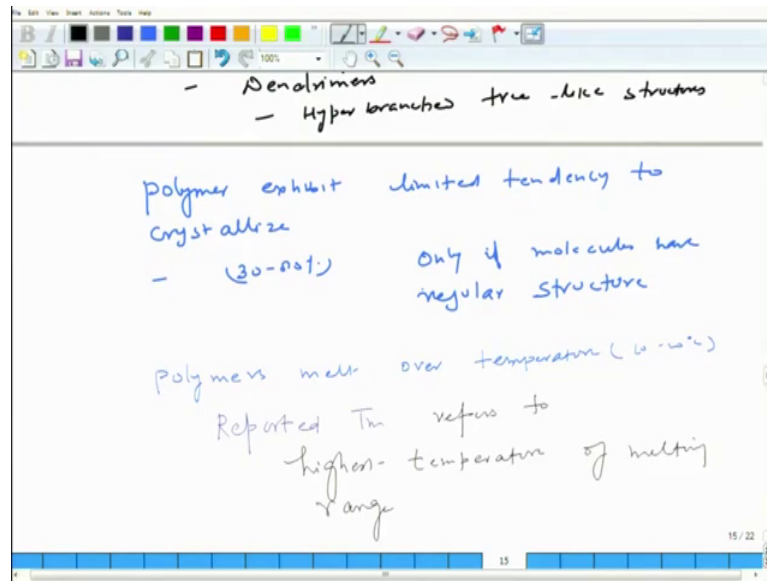 File Edit View Insert Actions Tools Help
B I
100%
- Dendrimers
- Hyper branched tree-like structures
polymer exhibit limited tendency to
crystallize
- Only if molecules have
regular structure
polymers melt over temperature
Reported Tm refers to
highest temperature of melting
range
15 / 22
15